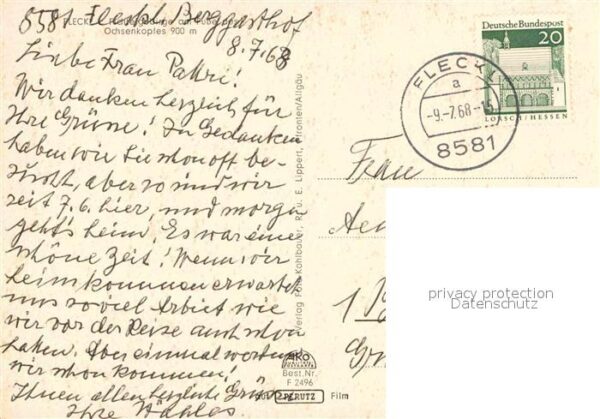 8581 Fleckl Berggasthof
FLECKL
Ochsenkopfes 900 m
8.7.68
Liebe Frau
Wir danken herzlich für
Ihre Grüsse! In Gedanken
haben wir Sie schon oft be-
sucht, aber so sind wir
seit 7.6. hier, und morgen
geht's heim. Es war eine
schöne Zeit! Wenn wir
heimkommen erwartet
uns soviel Arbeit wie
wir vor der Reise auch schon
hatten. Aber einmal werden
wir schon kommen!
Ihnen allen herzliche Grüsse
Ihre
Verlag Fritz Kohlbauer, Repro u. E. Lippert, Pfronten/Allgäu
AKO
Best.Nr.
F 2496
PERUTZ Film
Deutsche Bundespost
20
LORSCH / HESSEN
FLECKL
a
-9.-7.68.-15
8581
Frau
1
privacy protection
Datenschutz